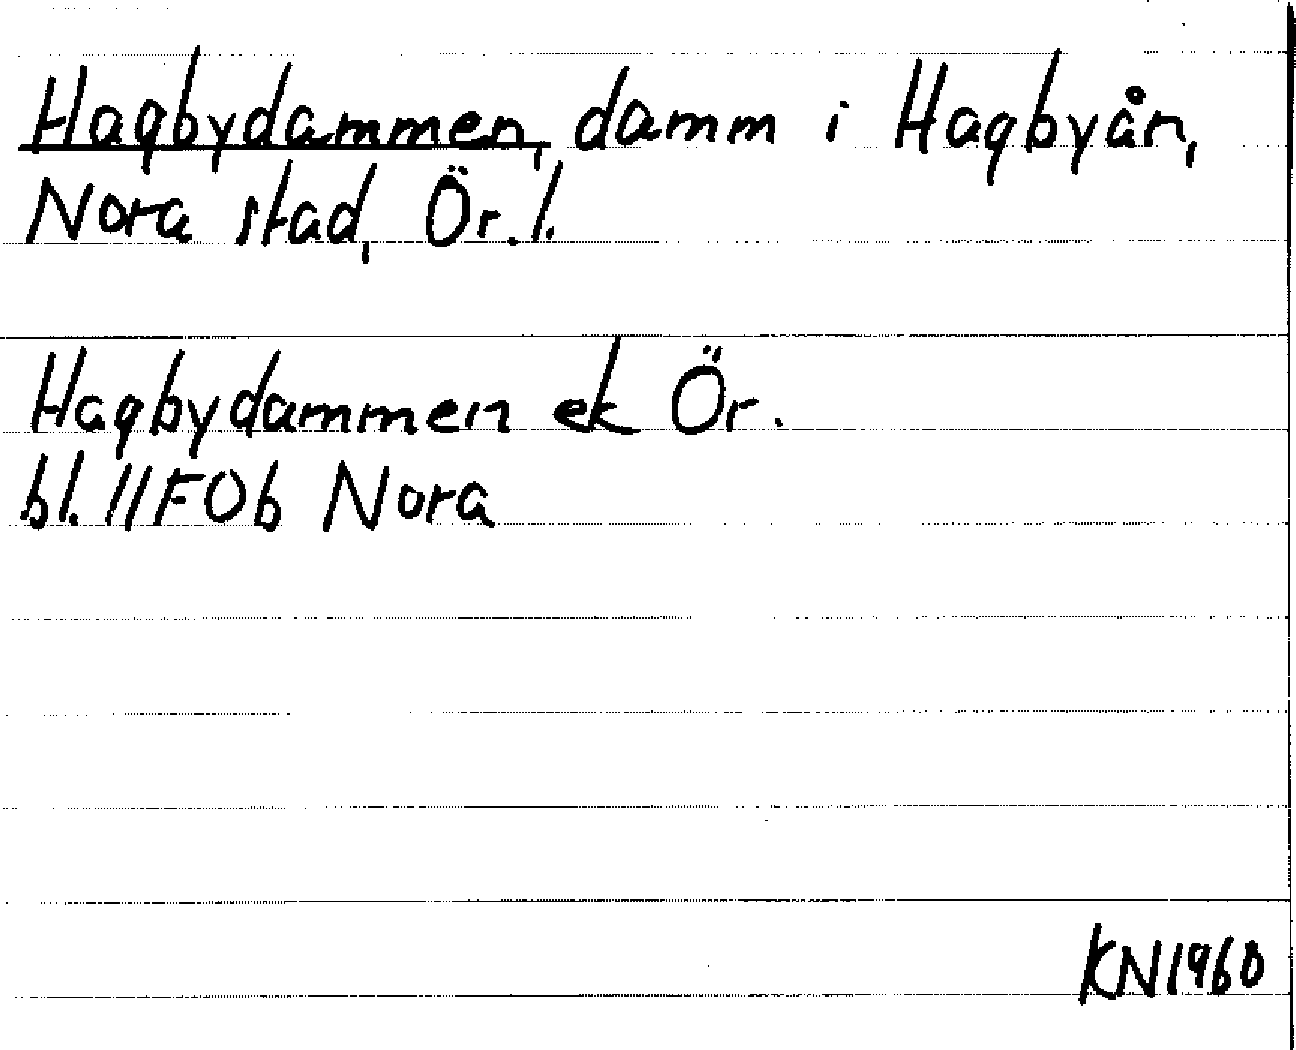 Hagbydammen, damm i Hagbyån,
Nora stad, Ör.l.
Hagbydammen ek Ör.
bl. 11F0b Nora
KN1960